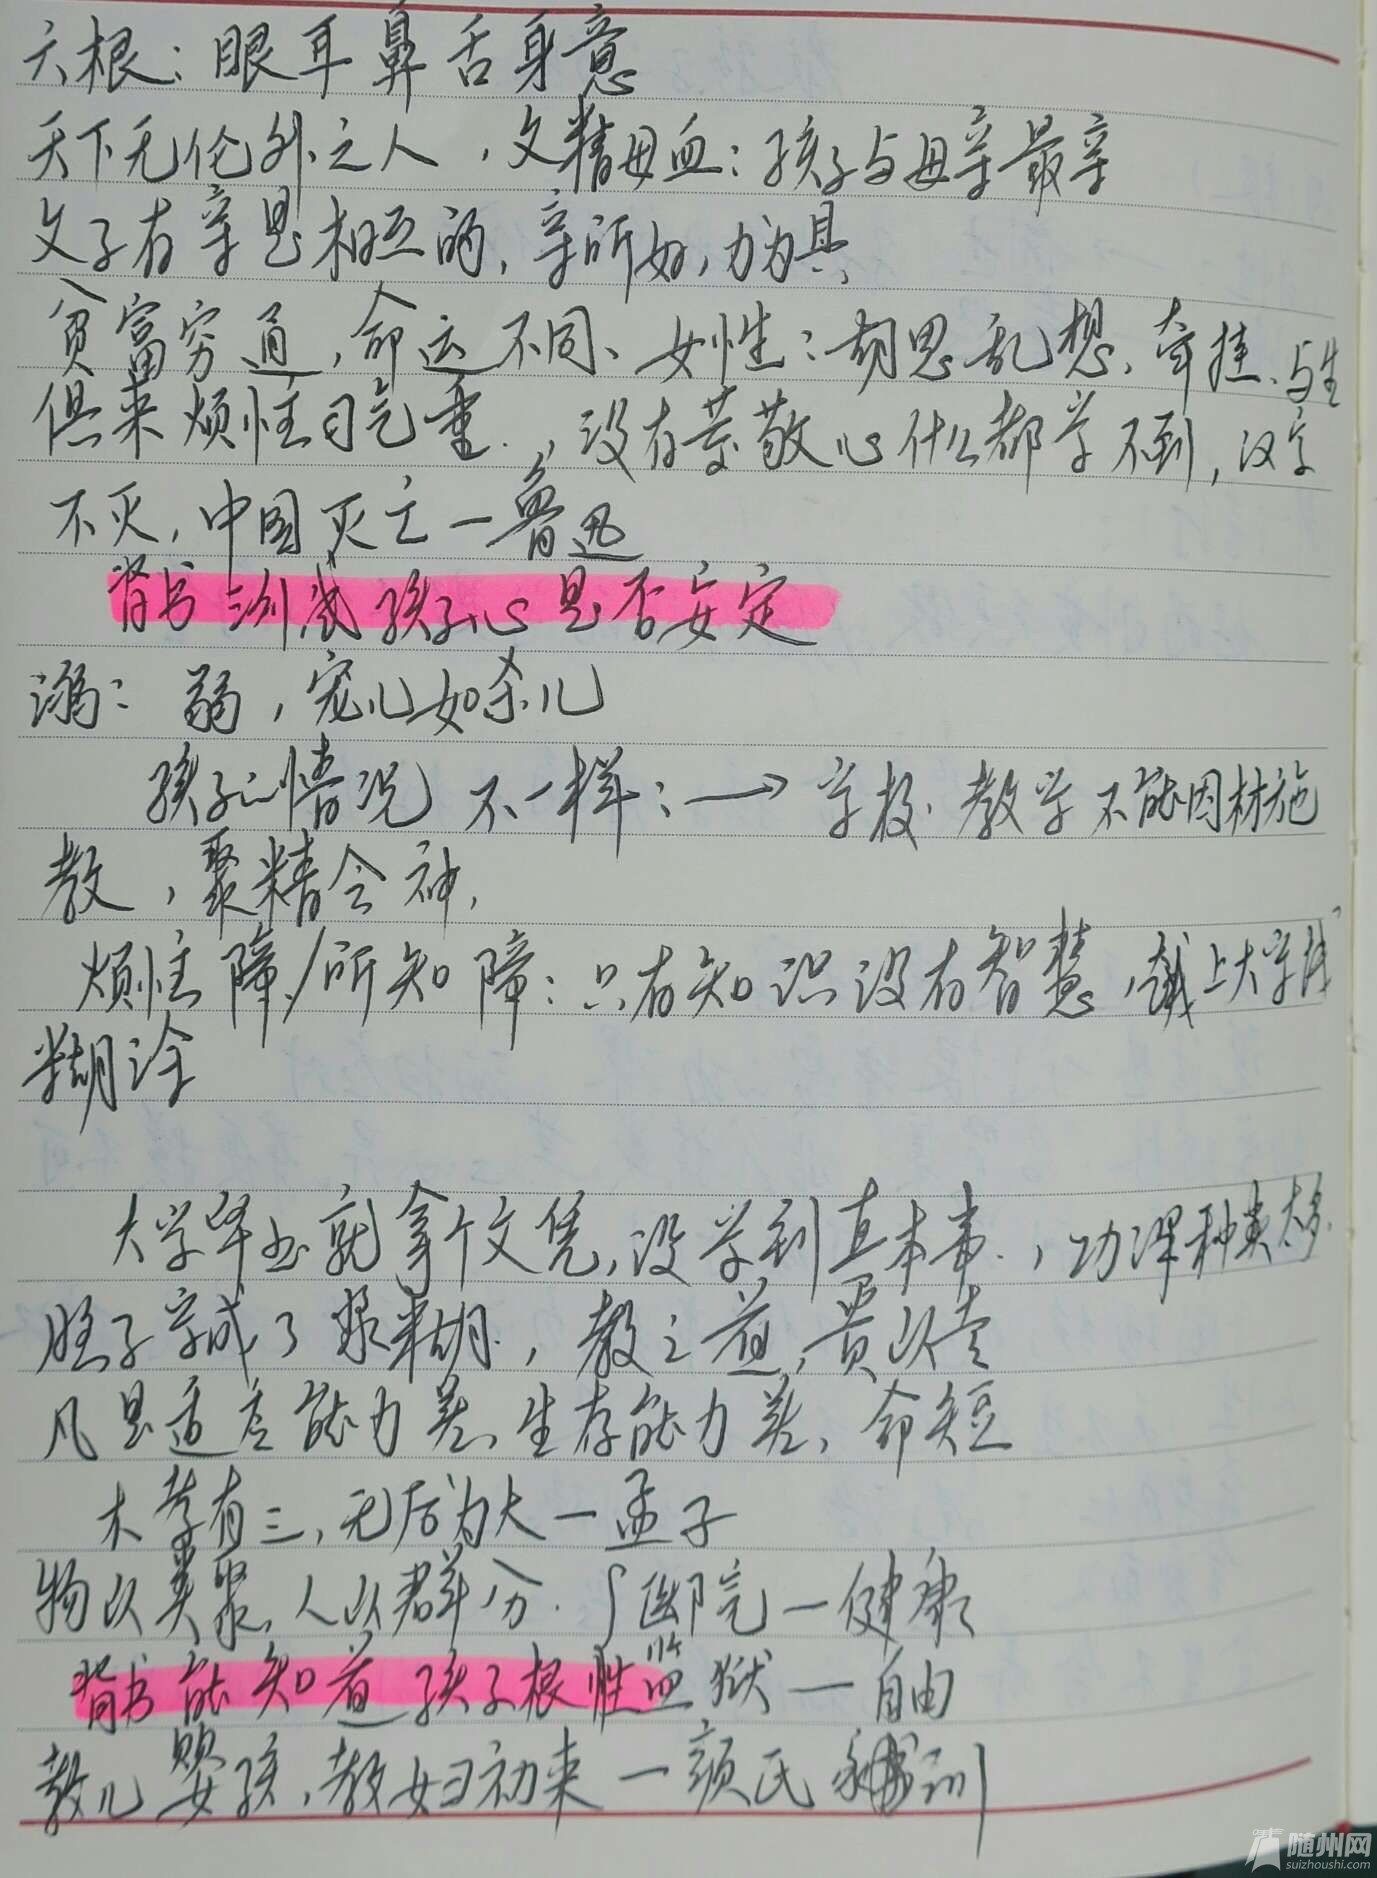 六根：眼耳鼻舌身意
天下无伦外之人，父精母血：孩子与母亲最亲
父子有亲是相互的，亲所好，力为具
贫富穷通，命运不同、女性：胡思乱想，牵挂、与生
俱来烦恼习气重，没有恭敬心什么都学不到，汉字
不灭，中国灭亡—鲁迅
背书测试孩子心是否安定
溺：弱，宠儿如杀儿
孩子情况不一样：→学校教学不能因材施
教，聚精会神，
烦恼障/所知障：只有知识没有智慧，越上大学越
糊涂
大学毕业就拿个文凭，没学到真本事，功课种类太多
脑子学成了浆糊，教之道，贵以专
凡是适应能力差、生存能力差，命短
不孝有三，无后为大—孟子
物以类聚，人以群分．医院—健康
背书能知道孩子根性 监狱—自由
教儿婴孩，教妇初来—颜氏家训
随州网
suizhoushi.com